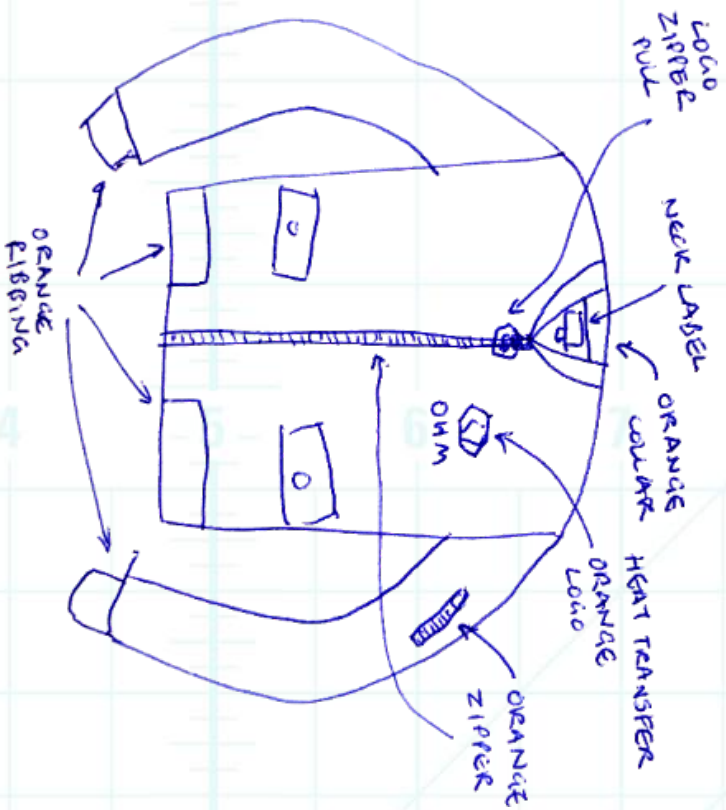 LOGO
ZIPPER
PULL
NECK LABEL
ORANGE
COLLAR
HEAT TRANSFER
ORANGE
LOGO
OHM
ORANGE
ZIPPER
ORANGE
RIBBING
4
5
6
7